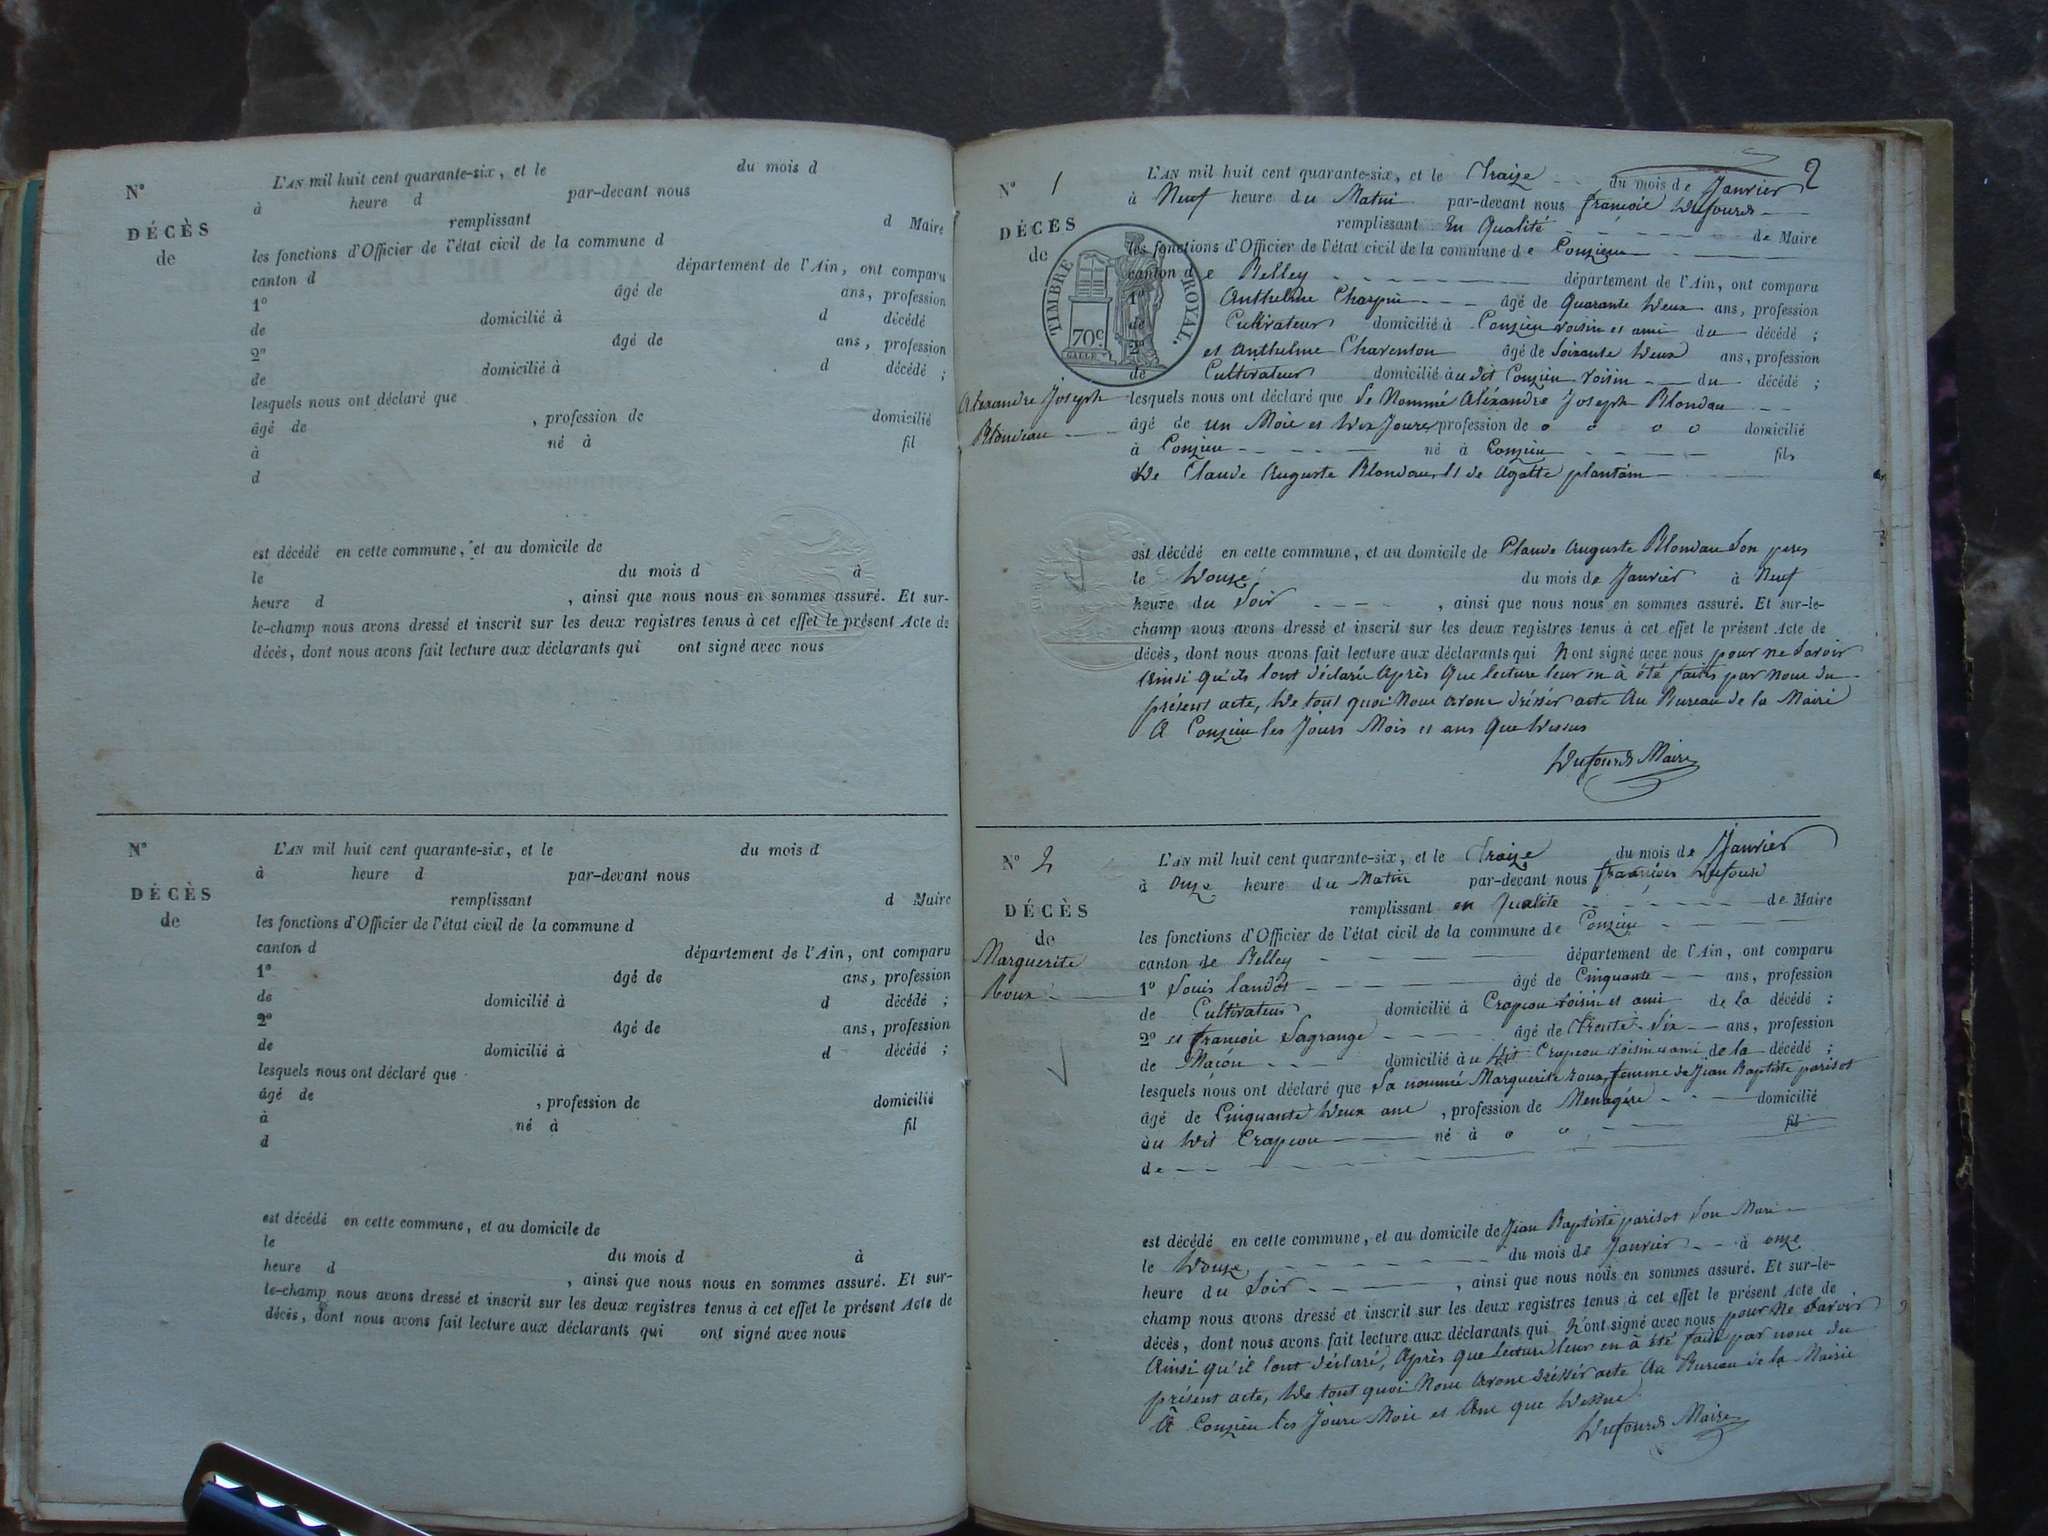 N°
DÉCÈS
de
L'AN mil huit cent quarante-six, et le du mois d
à heure d par-devant nous
remplissant d Maire
les fonctions d'Officier de l'état civil de la commune d
canton d département de l'Ain, ont comparu
1° âgé de ans, profession
de domicilié à d décédé
2° âgé de ans, profession
de domicilié à d décédé ;
lesquels nous ont déclaré que
âgé de , profession de domicilié
à né à fil
d
est décédé en cette commune, et au domicile de
le du mois d à
heure d , ainsi que nous nous en sommes assuré. Et sur-
le-champ nous avons dressé et inscrit sur les deux registres tenus à cet effet le présent Acte de
décès, dont nous avons fait lecture aux déclarants qui ont signé avec nous
N°
DÉCÈS
de
L'AN mil huit cent quarante-six, et le du mois d
à heure d par-devant nous
remplissant d Maire
les fonctions d'Officier de l'état civil de la commune d
canton d département de l'Ain, ont comparu
1° âgé de ans, profession
de domicilié à d décédé ;
2° âgé de ans, profession
de domicilié à d décédé ;
lesquels nous ont déclaré que
âgé de , profession de domicilié
à né à fil
d
est décédé en cette commune, et au domicile de
le du mois d à
heure d , ainsi que nous nous en sommes assuré. Et sur-
le-champ nous avons dressé et inscrit sur les deux registres tenus à cet effet le présent Acte de
décès, dont nous avons fait lecture aux déclarants qui ont signé avec nous
2
N° 1
DÉCÈS
de
Alexandre Joseph
Blondeau
TIMBRE ROYAL.
70c
GALLE
L'AN mil huit cent quarante-six, et le Traize du mois de Janvier
à Neuf heure du Matin par-devant nous françois Dufourd
remplissant En Qualité de Maire
les fonctions d'Officier de l'état civil de la commune de Conzieu
canton de Belley département de l'Ain, ont comparu
1° Anthelme Charpin âgé de Quarante Deux ans, profession
de Cultivateur domicilié à Conzieu voisin et ami du décédé ;
2° et Anthelme Charenton âgé de Soixante Deux ans, profession
de Cultivateur domicilié àu dit Conzieu voisin du décédé ;
lesquels nous ont déclaré que Le Nommé Aléxandre Joseph Blondau
âgé de un Mois et Dix Jours profession de o o o o domicilié
à Conzieu né à Conzieu fils
de Claude Auguste Blondau et de Agatte plantin
est décédé en cette commune, et au domicile de Claude Auguste Blondau Son pere
le Douze du mois de Janvier à Neuf
heure du Soir , ainsi que nous nous en sommes assuré. Et sur-le-
champ nous avons dressé et inscrit sur les deux registres tenus à cet effet le présent Acte de
décès, dont nous avons fait lecture aux déclarants qui N'ont signé avec nous pour ne Savoir
Ainsi qu'ils lont déclaré Après Que lecture leur en à été faite par nous du
présent acte, De tout quoi Nous avons dréssér acte Au Bureau de la Mairie
A Conzieu les Jours Mois et ans Que Dessus
Dufourd Maire
N° 2
DÉCÈS
de
Marguerite
Roux
L'AN mil huit cent quarante-six, et le Traize du mois de Janvier
à Onze heure du Matin par-devant nous françois Dufourd
remplissant en Qualité de Maire
les fonctions d'Officier de l'état civil de la commune de Conzieu
canton de Belley département de l'Ain, ont comparu
1° Louis landot âgé de Cinquante ans, profession
de Cultivateur domicilié à Crapeou voisin et ami de la décédé ;
2° et françois Lagrange âgé de Trente Six ans, profession
de Maçon domicilié àu dit Crapeou voisin et ami de la décédé ;
lesquels nous ont déclaré que La nommé Marguerite roux, femme de Jean Baptiste parisot
âgé de Cinquante Deux ans , profession de Menagére domicilié
àu Dit Crapeou né à o o fil
de
est décédé en cette commune, et au domicile de Jean Baptiste parisot Son Mari
le Douze du mois de Janvier à onze
heure du Soir , ainsi que nous nous en sommes assuré. Et sur-le-
champ nous avons dressé et inscrit sur les deux registres tenus à cet effet le présent Acte de
décès, dont nous avons fait lecture aux déclarants qui N'ont signé avec nous pour ne Savoir
Ainsi qu'il lont déclaré, Après que Lecture leur en à été faite par nous du
présent acte, De tout quoi Nous avons dréssér acte Au Bureau de la Mairie
A Conzieu les Jours Mois et Ans que Dessus
Dufourd Maire